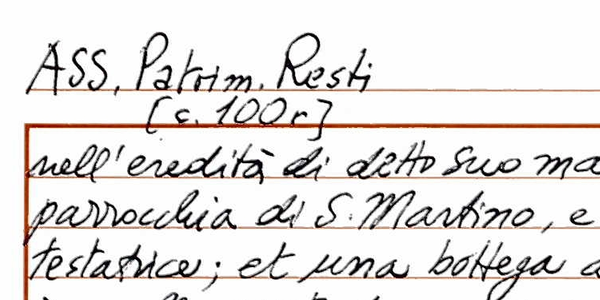 ASS, Patrim. Resti
[c. 100r]
nell'eredità di detto suo ma
parrocchia di S. Martino, e
testatrice; et una bottega a